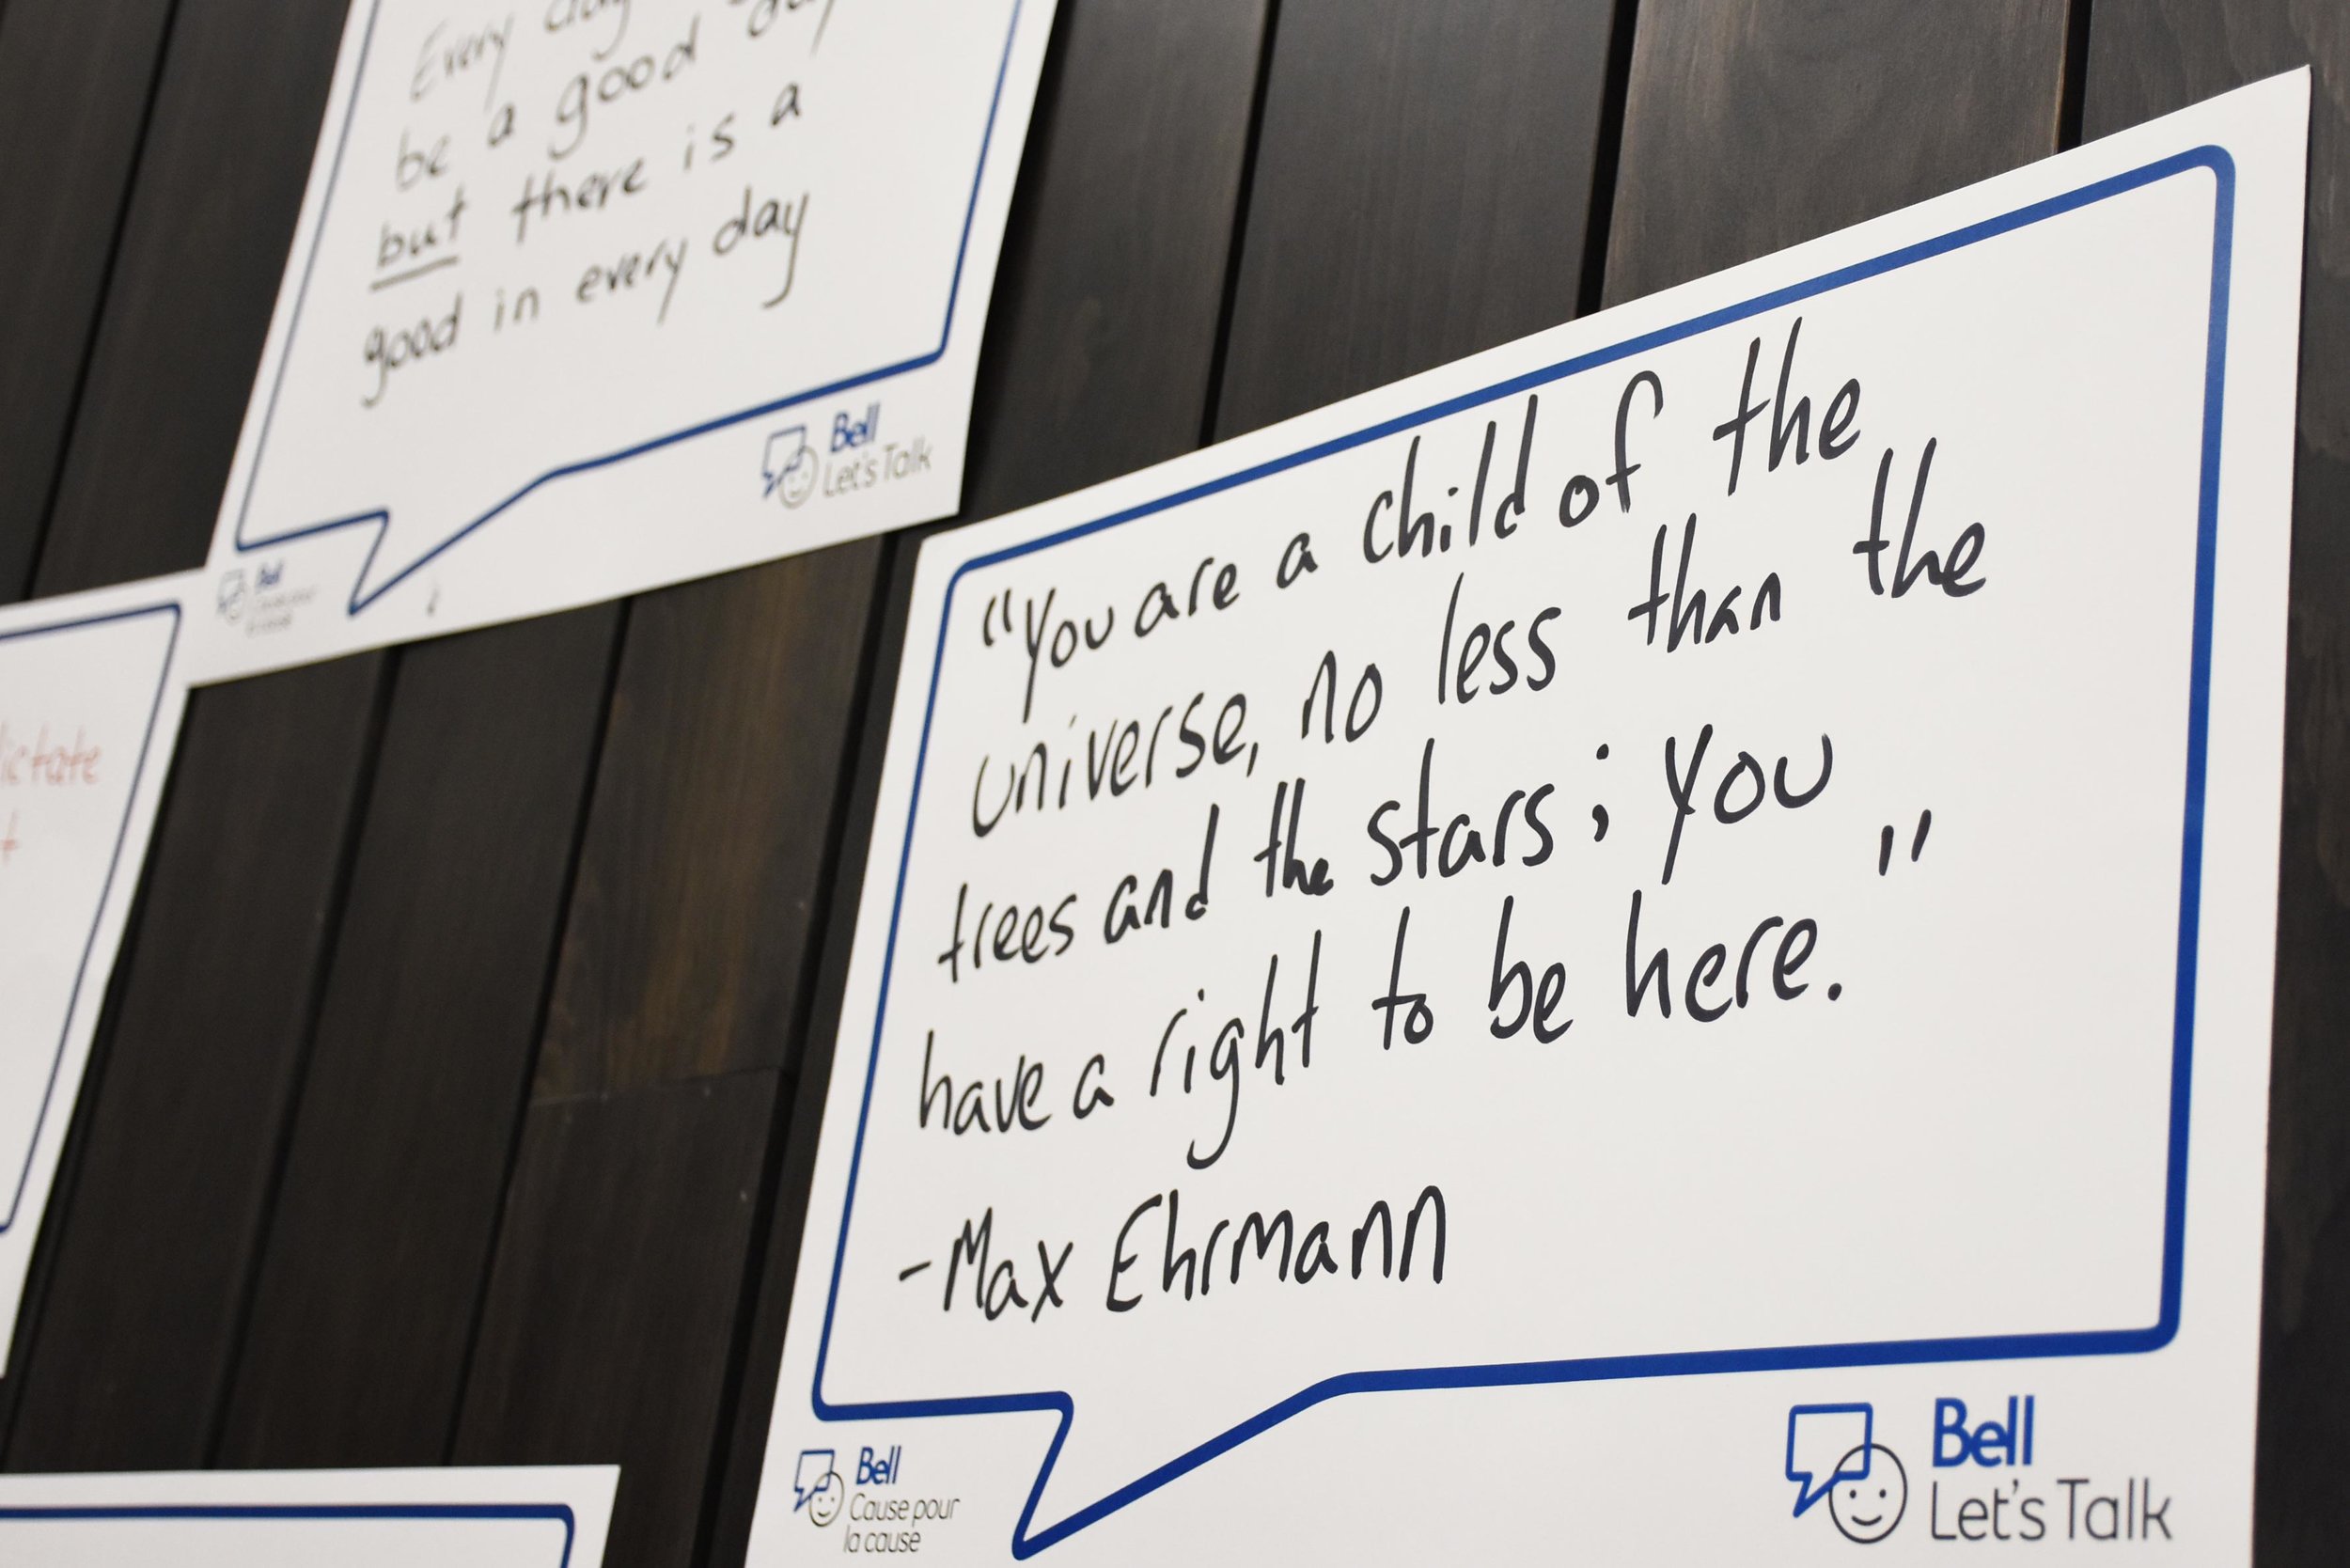 Every day
be a good day
but there is a
good in every day
Bell
Let's Talk
Bell
ictate
t
"You are a child of the
universe, no less than the
trees and the stars; you
have a right to be here."
-Max Ehrmann
Bell
Cause pour
la cause
Bell
Let's Talk